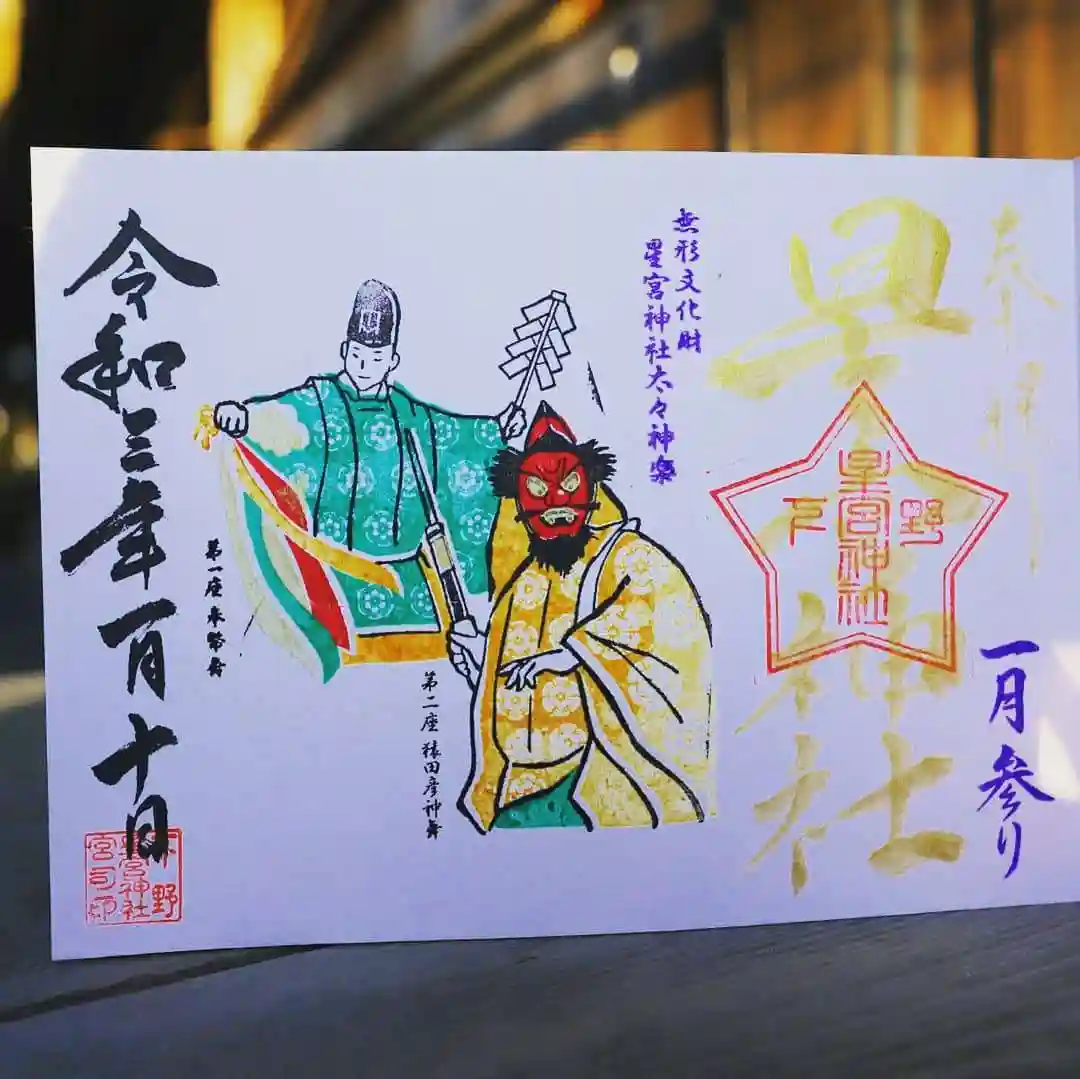 奉拝
星宮神社
下野
星宮神社
一月参り
無形文化財
星宮神社太々神楽
第一座 奉幣舞
第二座 猿田彦神舞
令和三年一月十日
下野
星宮神社
宮司印